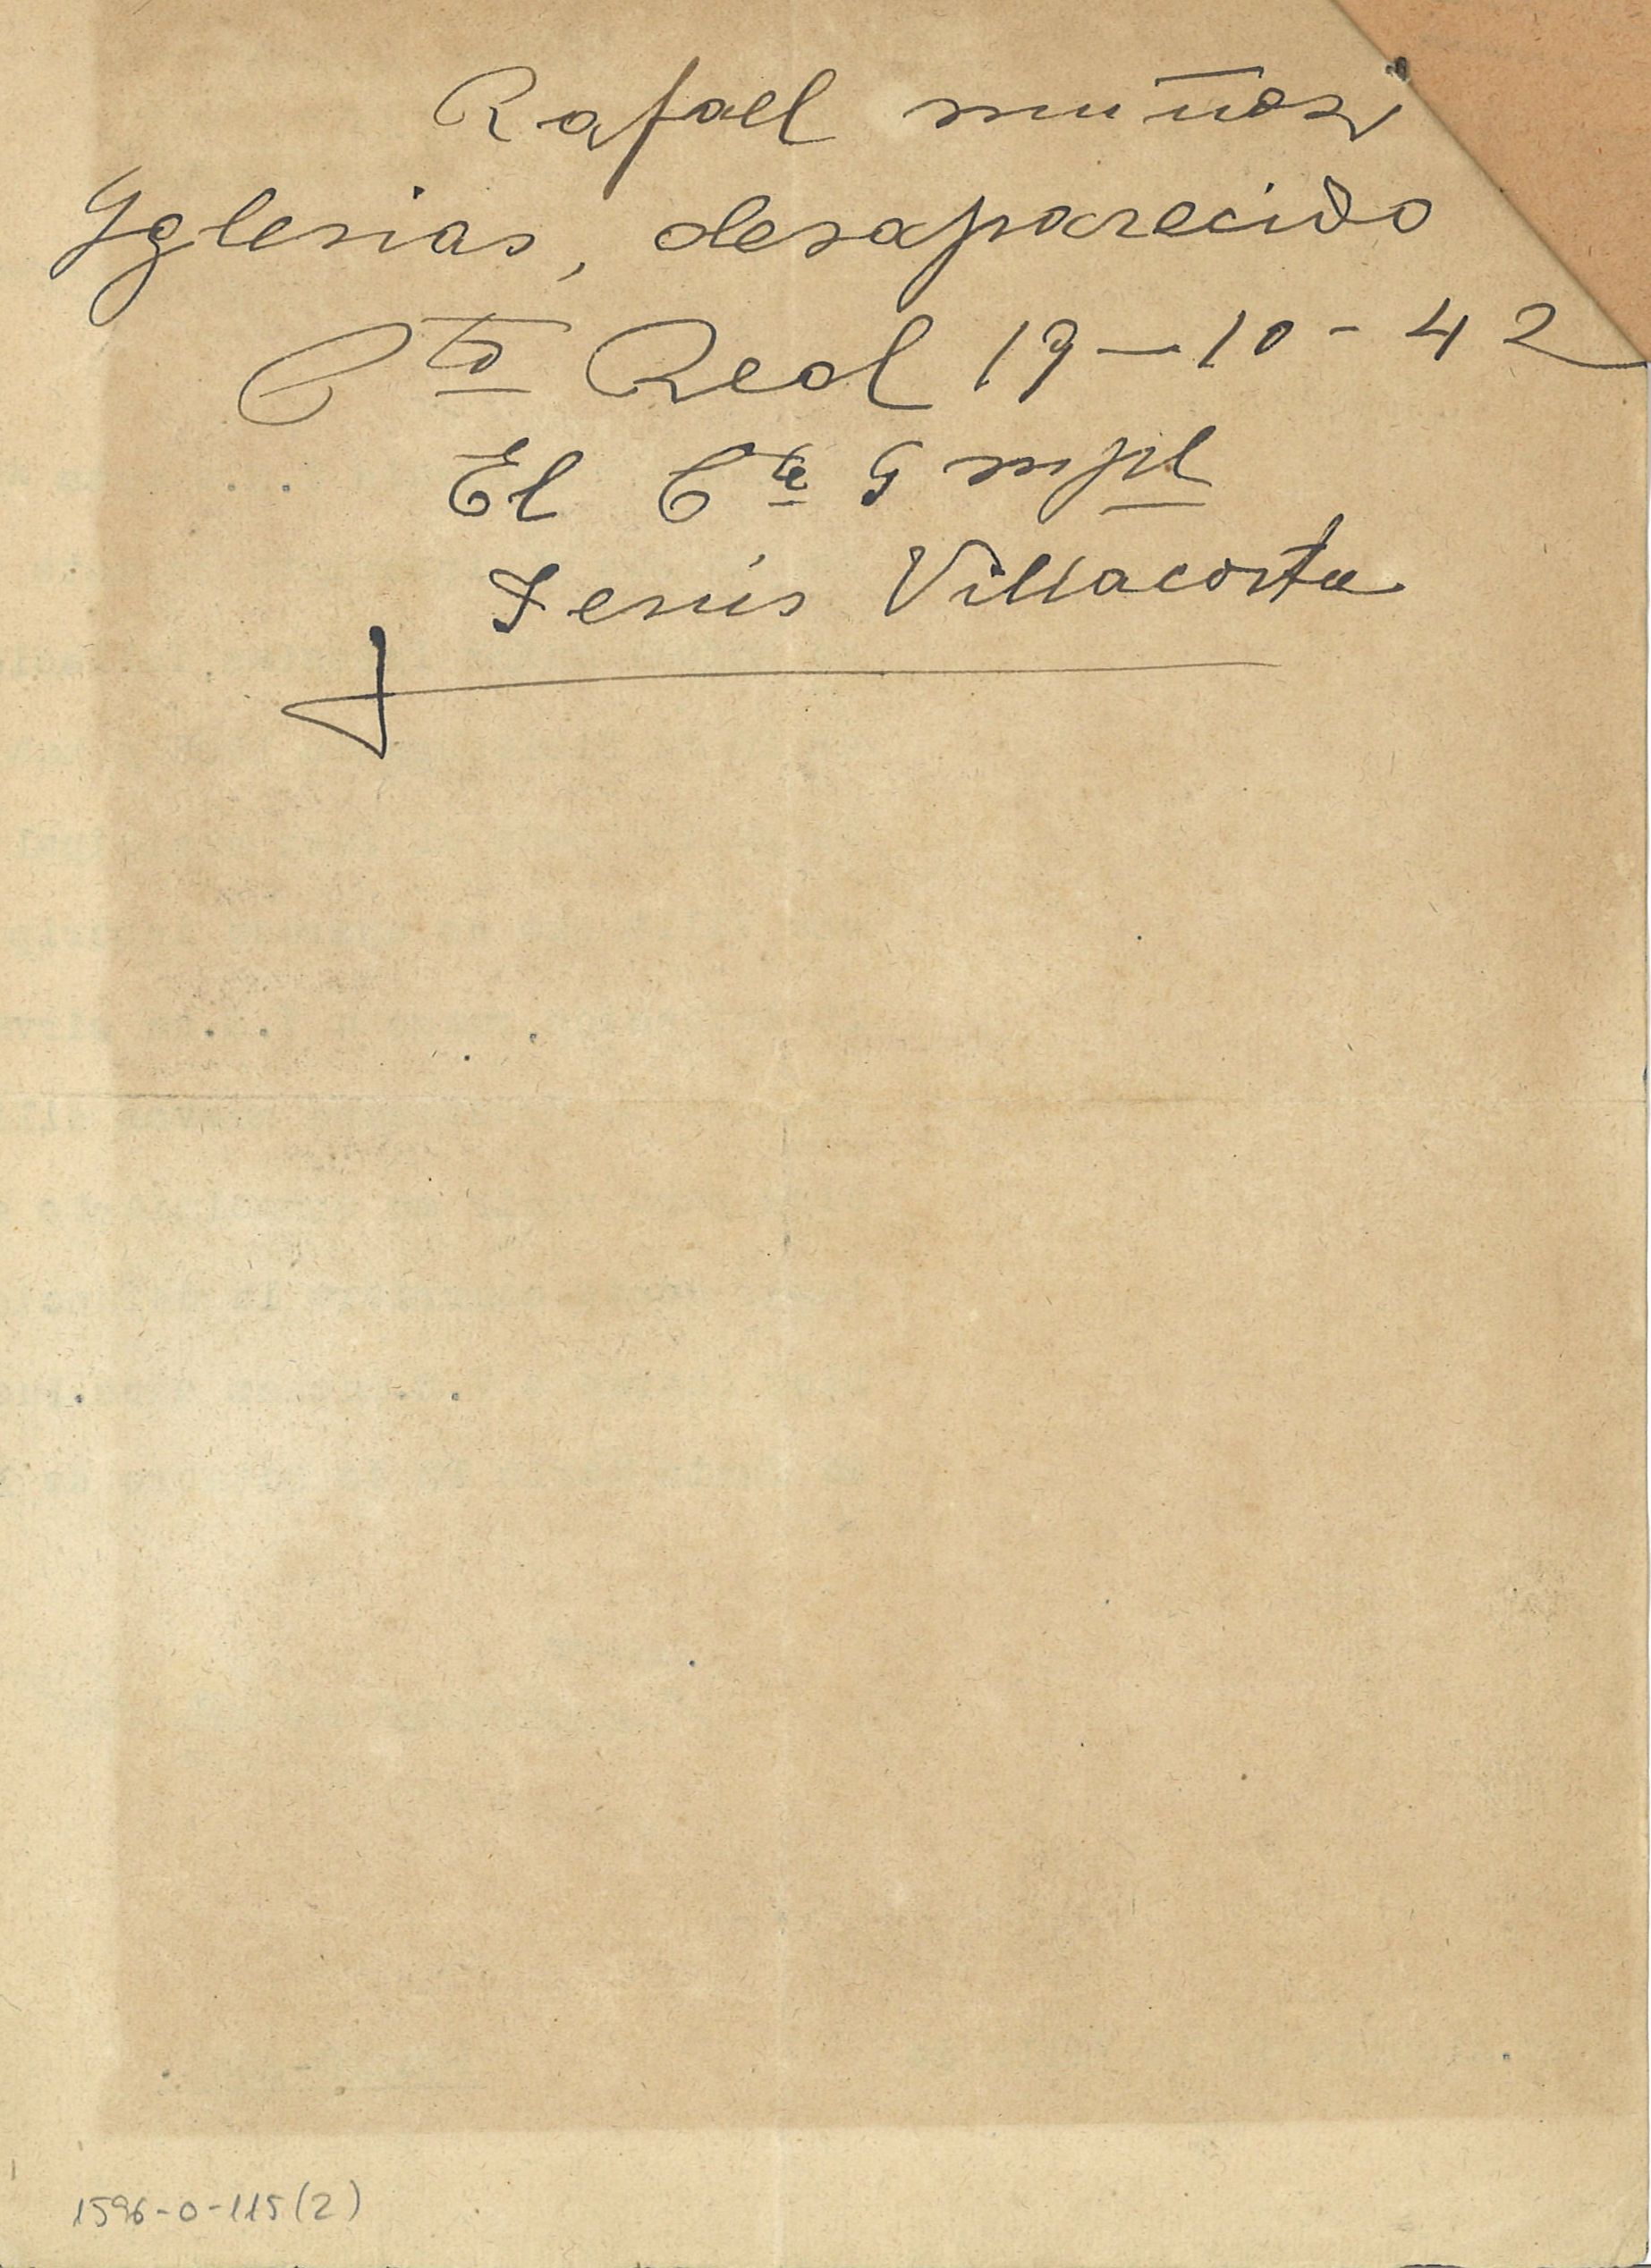 Rafael muñoz
Yglesias, desaparecido
Pto Real 19-10-42
El Cte G mpl
Jesús Villacorta
1596-0-115(2)